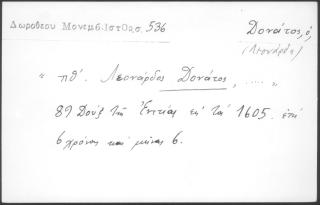 Δωροθέου Μονεμβ. Ιστορ. 536
Δονάτος, ὁ,
(Λεονάρδος)
" πθ´. Λεονάρδος Δονάτος, ..... "
89 Δούξ τῆς Ἐνετίας εἰς τὰ 1605. ἔτη
6 χρόνος καὶ μῆνας 6.